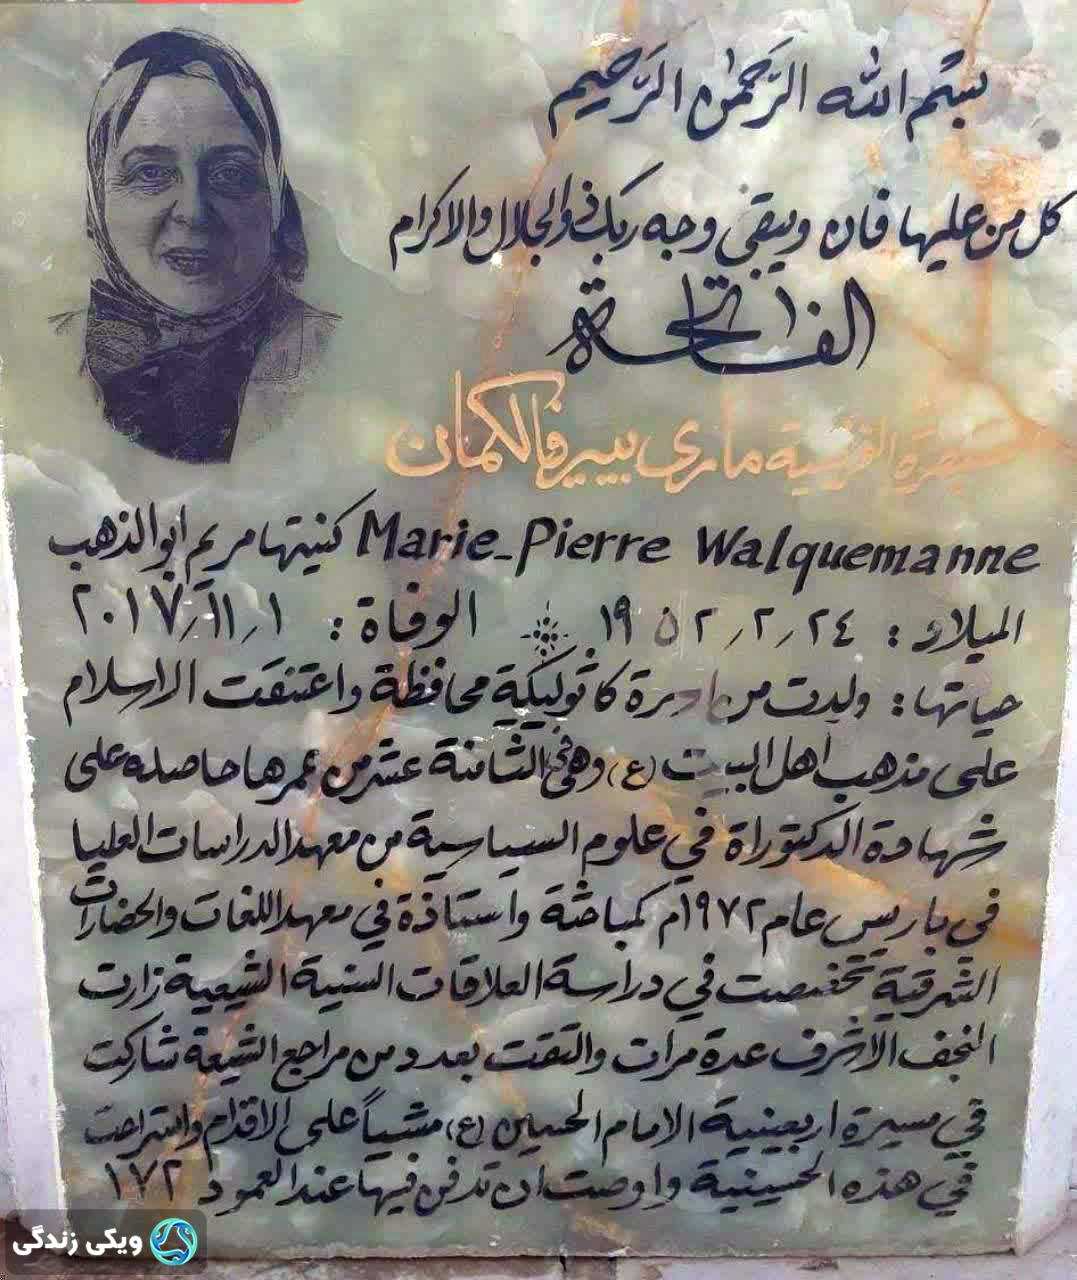 بسم الله الرَّحمٰن الرَّحيم
كل من عليها فان ويبقى وجه ربك ذو الجلال والاكرام
الفاتحة
الفرنسية ماري بيير فالكمان
Marie_Pierre Walquemanne كنيتها مريم ابو الذهب
الميلاد : ٢٤ ٫ ٢ ٫ ١٩٥٢ الوفاة : ١ ٫ ١١ ٫ ٢٠١٧
حياتها : ولدت من كاثوليكية محافظة واعتنقت الاسلام
على مذهب اهل البيت (ع) وهي في الثامنة عشر من عمرها حاصله على
شهادة الدكتوراة في علوم السياسية من معهد الدراسات العليا
في باريس عام ١٩٧٢م كباحثة واستاذة في معهد اللغات والحضارات
الشرقية تخصصت في دراسة العلاقات السنية الشيعية زارت
النجف الاشرف عدة مرات والتقت بعدد من مراجع الشيعة شاركت
في مسيرة اربعينية الامام الحسين (ع) مشياً على الاقدام واستراحت
في هذه الحسينية واوصت ان تدفن فيها عند العمود ١٧٢
ویکی زندگی